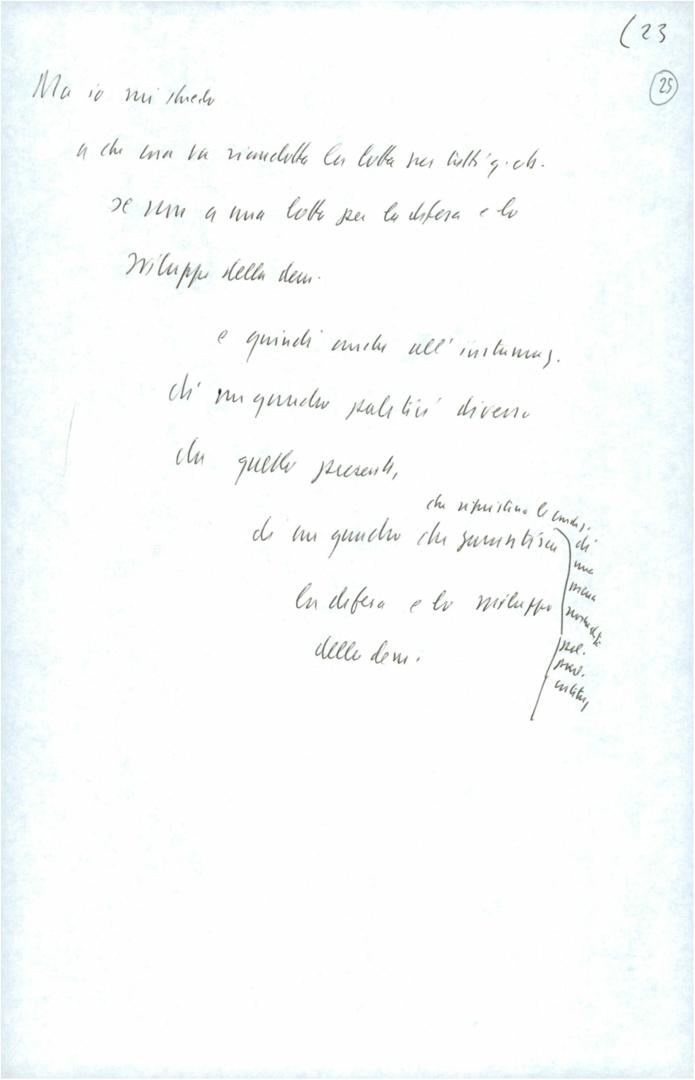 (23
25
Ma io mi chiedo
a che cosa va ricondotta la lotta per tutti q. ob.
se non a una lotta per la difesa e lo
sviluppo della dem.
e quindi anche all'instauraz.
di un quadro politico diverso
da quello presente,
che ripristina le condiz.
di un quadro che garantisca
di
una
piena
la difesa e lo sviluppo
della dem.
pol.